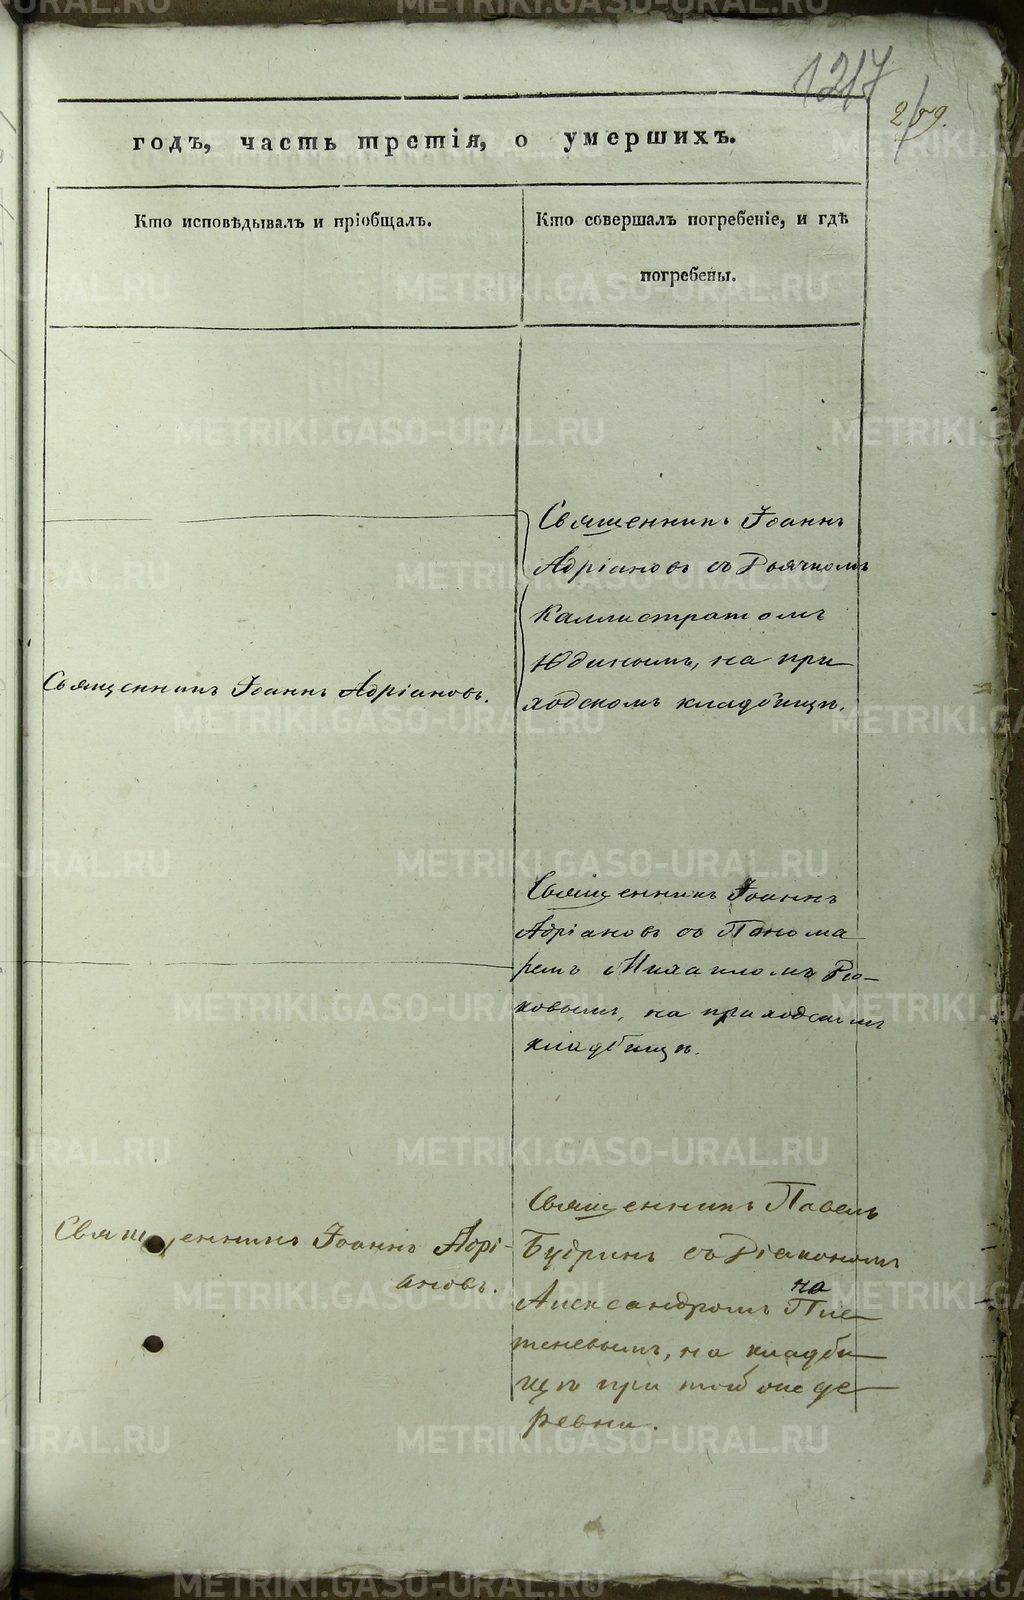 1217
269.
годъ, часть третія, о умершихъ.
Кто исповѣдывалъ и пріобщалъ.
Кто совершалъ погребеніе, и гдѣ
погребены.
Священникъ Іоаннъ
Адріановъ съ Дьячкомъ
Каллистратомъ
Юдинымъ, на при
ходскомъ кладбищѣ.
Священникъ Іоаннъ Адріановъ.
Священникъ Іоаннъ
Адріановъ съ Понома
ремъ Михаиломъ
ковымъ, на приходскомъ
кладбищѣ.
Священникъ Іоаннъ Адрі-
ановъ.
Священникъ Павелъ
Будринъ съ Діакономъ
Александромъ на
теневымъ, на кладби
щѣ при той же де
ревни.
METRIKI.GASO-URAL.RU